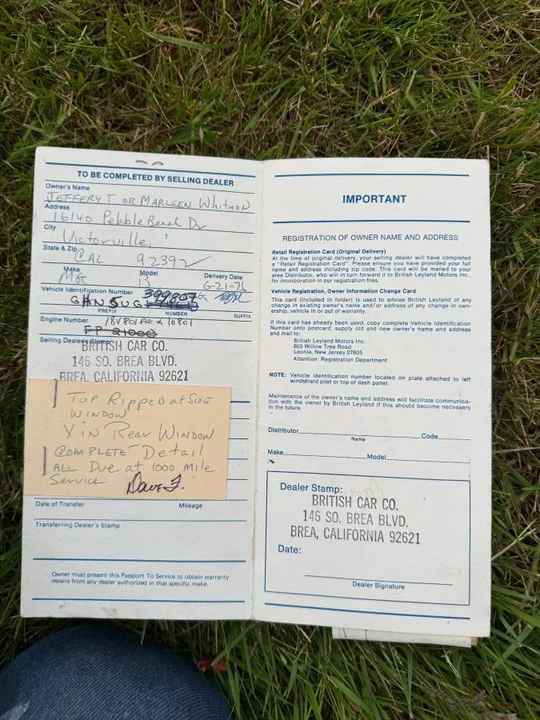 TO BE COMPLETED BY SELLING DEALER
Owner's Name
JEFFERY T OR MARLEEN WHITMAN
Address
16140 Pebble Beach Dr
City
Victorville,
State & Zip
CAL 92392
Make Model Delivery Date
MG B 6-21-76
Vehicle Identification Number
GHN5UG
PREFIX NUMBER SUFFIX
Engine Number
Selling Dealer's
BRITISH CAR CO.
146 SO. BREA BLVD.
BREA, CALIFORNIA 92621
TOP Ripped at SIDE
WINDOW
X in Rear Window
COMPLETE Detail
ALL Due at 1000 Mile
Service Dave F.
Date of Transfer Mileage
Transferring Dealer's Stamp
Owner must present this Passport To Service to obtain warranty
repairs from any dealer authorized in that specific make.
IMPORTANT
REGISTRATION OF OWNER NAME AND ADDRESS
Retail Registration Card (Original Delivery)
At the time of original delivery, your selling dealer will have completed
a "Retail Registration Card". Please ensure you have provided your full
name and address including zip code. This card will be mailed to your
area Distributor, who will in turn forward it to British Leyland Motors Inc.,
for incorporation in our registration files.
Vehicle Registration, Owner Information Change Card
This card (included in folder) is used to advise British Leyland of any
change in existing owner's name and/or address or of any change in own-
ership, vehicle in or out of warranty.
If this card has already been used, copy complete Vehicle Identification
Number onto postcard, supply old and new owner's name and address
and mail to:
British Leyland Motors Inc.
600 Willow Tree Road
Leonia, New Jersey 07605
Attention: Registration Department
NOTE: Vehicle identification number located on plate attached to left
windshield post or top of dash panel.
Maintenance of the owner's name and address will facilitate communica-
tion with the owner by British Leyland if this should become necessary
in the future.
Distributor Code
Name
Make Model
Dealer Stamp:
BRITISH CAR CO.
146 SO. BREA BLVD.
BREA, CALIFORNIA 92621
Date:
Dealer Signature